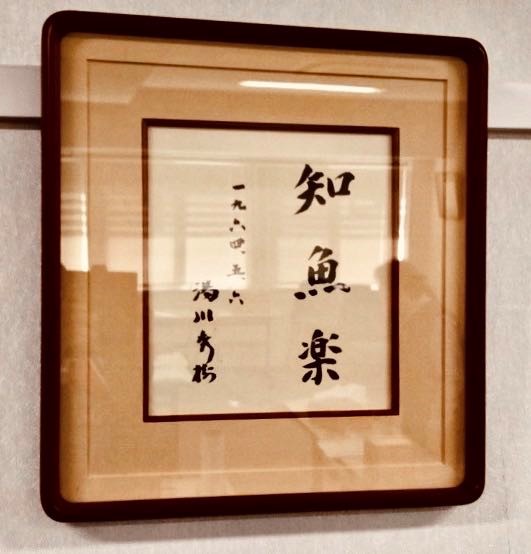 知魚楽
一九六四、五、六
湯川秀樹